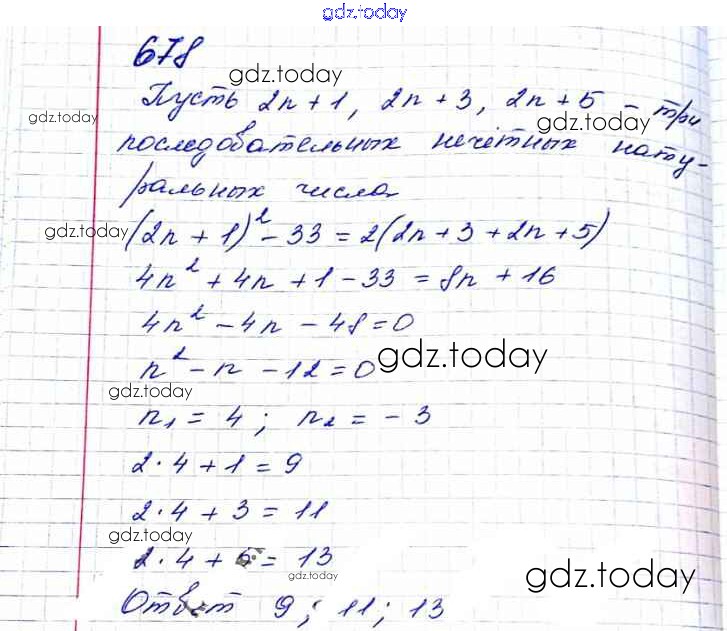 gdz.today
678
gdz.today
Пусть 2n+1, 2n+3, 2n+5 – три
gdz.today
gdz.today
последовательных нечётных нату-
ральных числа
gdz.today
(2n + 1)² - 33 = 2(2n + 3 + 2n + 5)
4n² + 4n + 1 - 33 = 8n + 16
4n² - 4n - 48 = 0
n² - n - 12 = 0
gdz.today
gdz.today
n₁ = 4 ; n₂ = - 3
2·4 + 1 = 9
2·4 + 3 = 11
gdz.today
2·4 + 5 = 13
gdz.today
gdz.today
Ответ 9 ; 11 ; 13